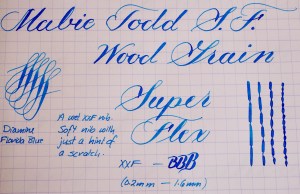 Mabie Todd S.F.
Wood Grain
Super
Flex
Diamine
Florida Blue
A wet XXF nib.
Soft nib with
just a hint of
a scratch.
XXF — BBB
(0.2mm — 1.6mm)